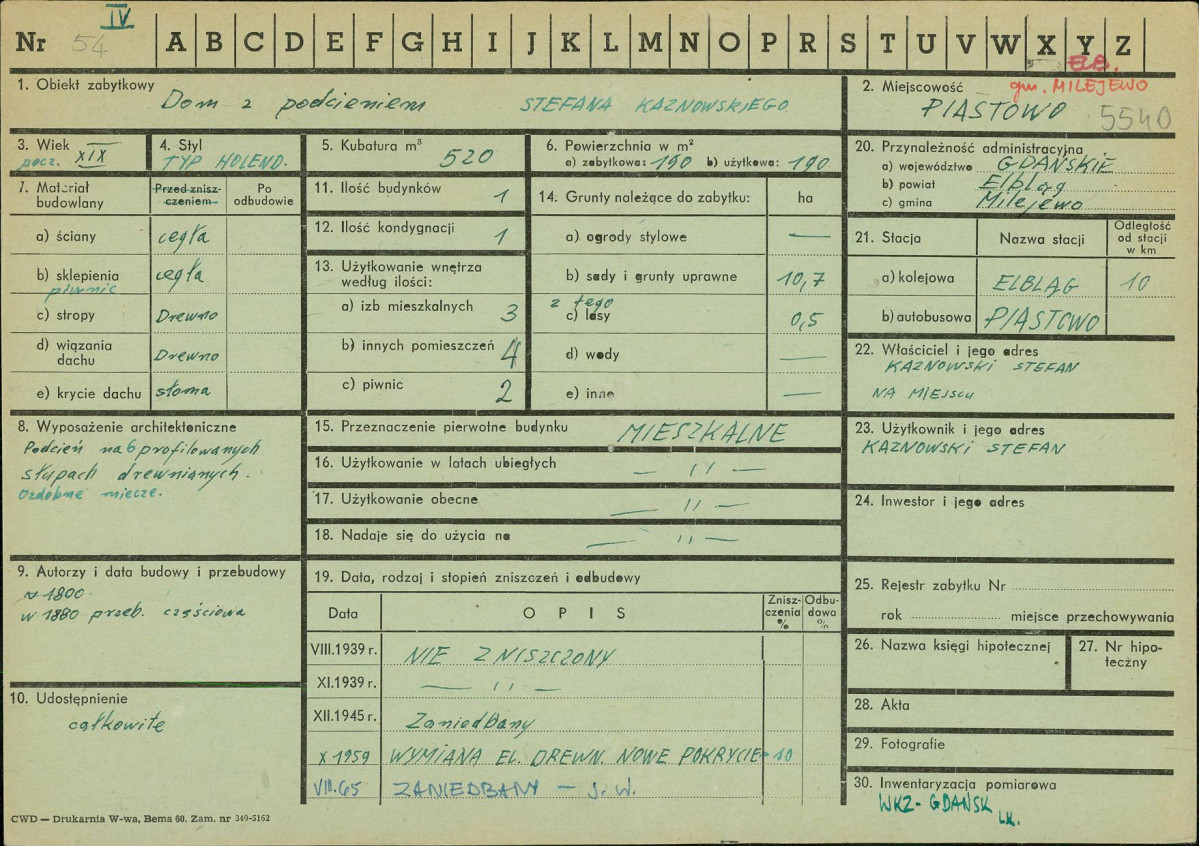 IV
Nr 54 A B C D E F G H I J K L M N O P R S T U V W X Y Z
1. Obiekt zabytkowy
Dom z podcieniem STEFANA KAZNOWSKIEGO
2. Miejscowość
ELB.
gm. MILEJEWO
PIASTOWO 5540
3. Wiek
pocz. XIX
4. Styl
TYP HOLEND.
5. Kubatura m³
520
6. Powierzchnia w m²
a) zabytkowa: 190 b) użytkowa: 190
20. Przynależność administracyjna
a) województwo GDAŃSKIE
b) powiat Elbląg
c) gmina Milejewo
7. Materiał budowlany
Przed zniszczeniem
Po odbudowie
a) ściany cegła
b) sklepienia cegła
piwnic
c) stropy Drewno
d) wiązania dachu Drewno
e) krycie dachu słoma
11. Ilość budynków 1
12. Ilość kondygnacji 1
13. Użytkowanie wnętrza według ilości:
a) izb mieszkalnych 3
b) innych pomieszczeń 4
c) piwnic 2
14. Grunty należące do zabytku: ha
a) ogrody stylowe —
b) sady i grunty uprawne 10,7
z tego
c) lasy 0,5
d) wody —
e) inne —
21. Stacja Nazwa stacji Odległość od stacji w km
a) kolejowa ELBLĄG 10
b) autobusowa PIASTOWO
22. Właściciel i jego adres
KAZNOWSKI STEFAN
NA MIEJSCU
8. Wyposażenie architektoniczne
Podcień na 6 profilowanych
słupach drewnianych.
Ozdobne miecze.
15. Przeznaczenie pierwotne budynku MIESZKALNE
16. Użytkowanie w latach ubiegłych — " —
17. Użytkowanie obecne — " —
18. Nadaje się do użycia na — " —
23. Użytkownik i jego adres
KAZNOWSKI STEFAN
24. Inwestor i jego adres
9. Autorzy i data budowy i przebudowy
~ 1800.
w 1880 przeb. częściowa
10. Udostępnienie
całkowite
19. Data, rodzaj i stopień zniszczeń i odbudowy
Data OPIS Zniszczenia % Odbudowa %
VIII.1939 r. NIE ZNISZCZONY
XI.1939 r. — " —
XII.1945 r. Zaniedbany
X 1959 WYMIANA EL. DREWN. NOWE POKRYCIE - 10
VIII.65 ZANIEDBANY — J. W.
25. Rejestr zabytku Nr
rok miejsce przechowywania
26. Nazwa księgi hipotecznej
27. Nr hipoteczny
28. Akta
29. Fotografie
30. Inwentaryzacja pomiarowa
WKZ - GDAŃSK
I.K.
CWD — Drukarnia W-wa, Bema 60. Zam. nr 349-5162